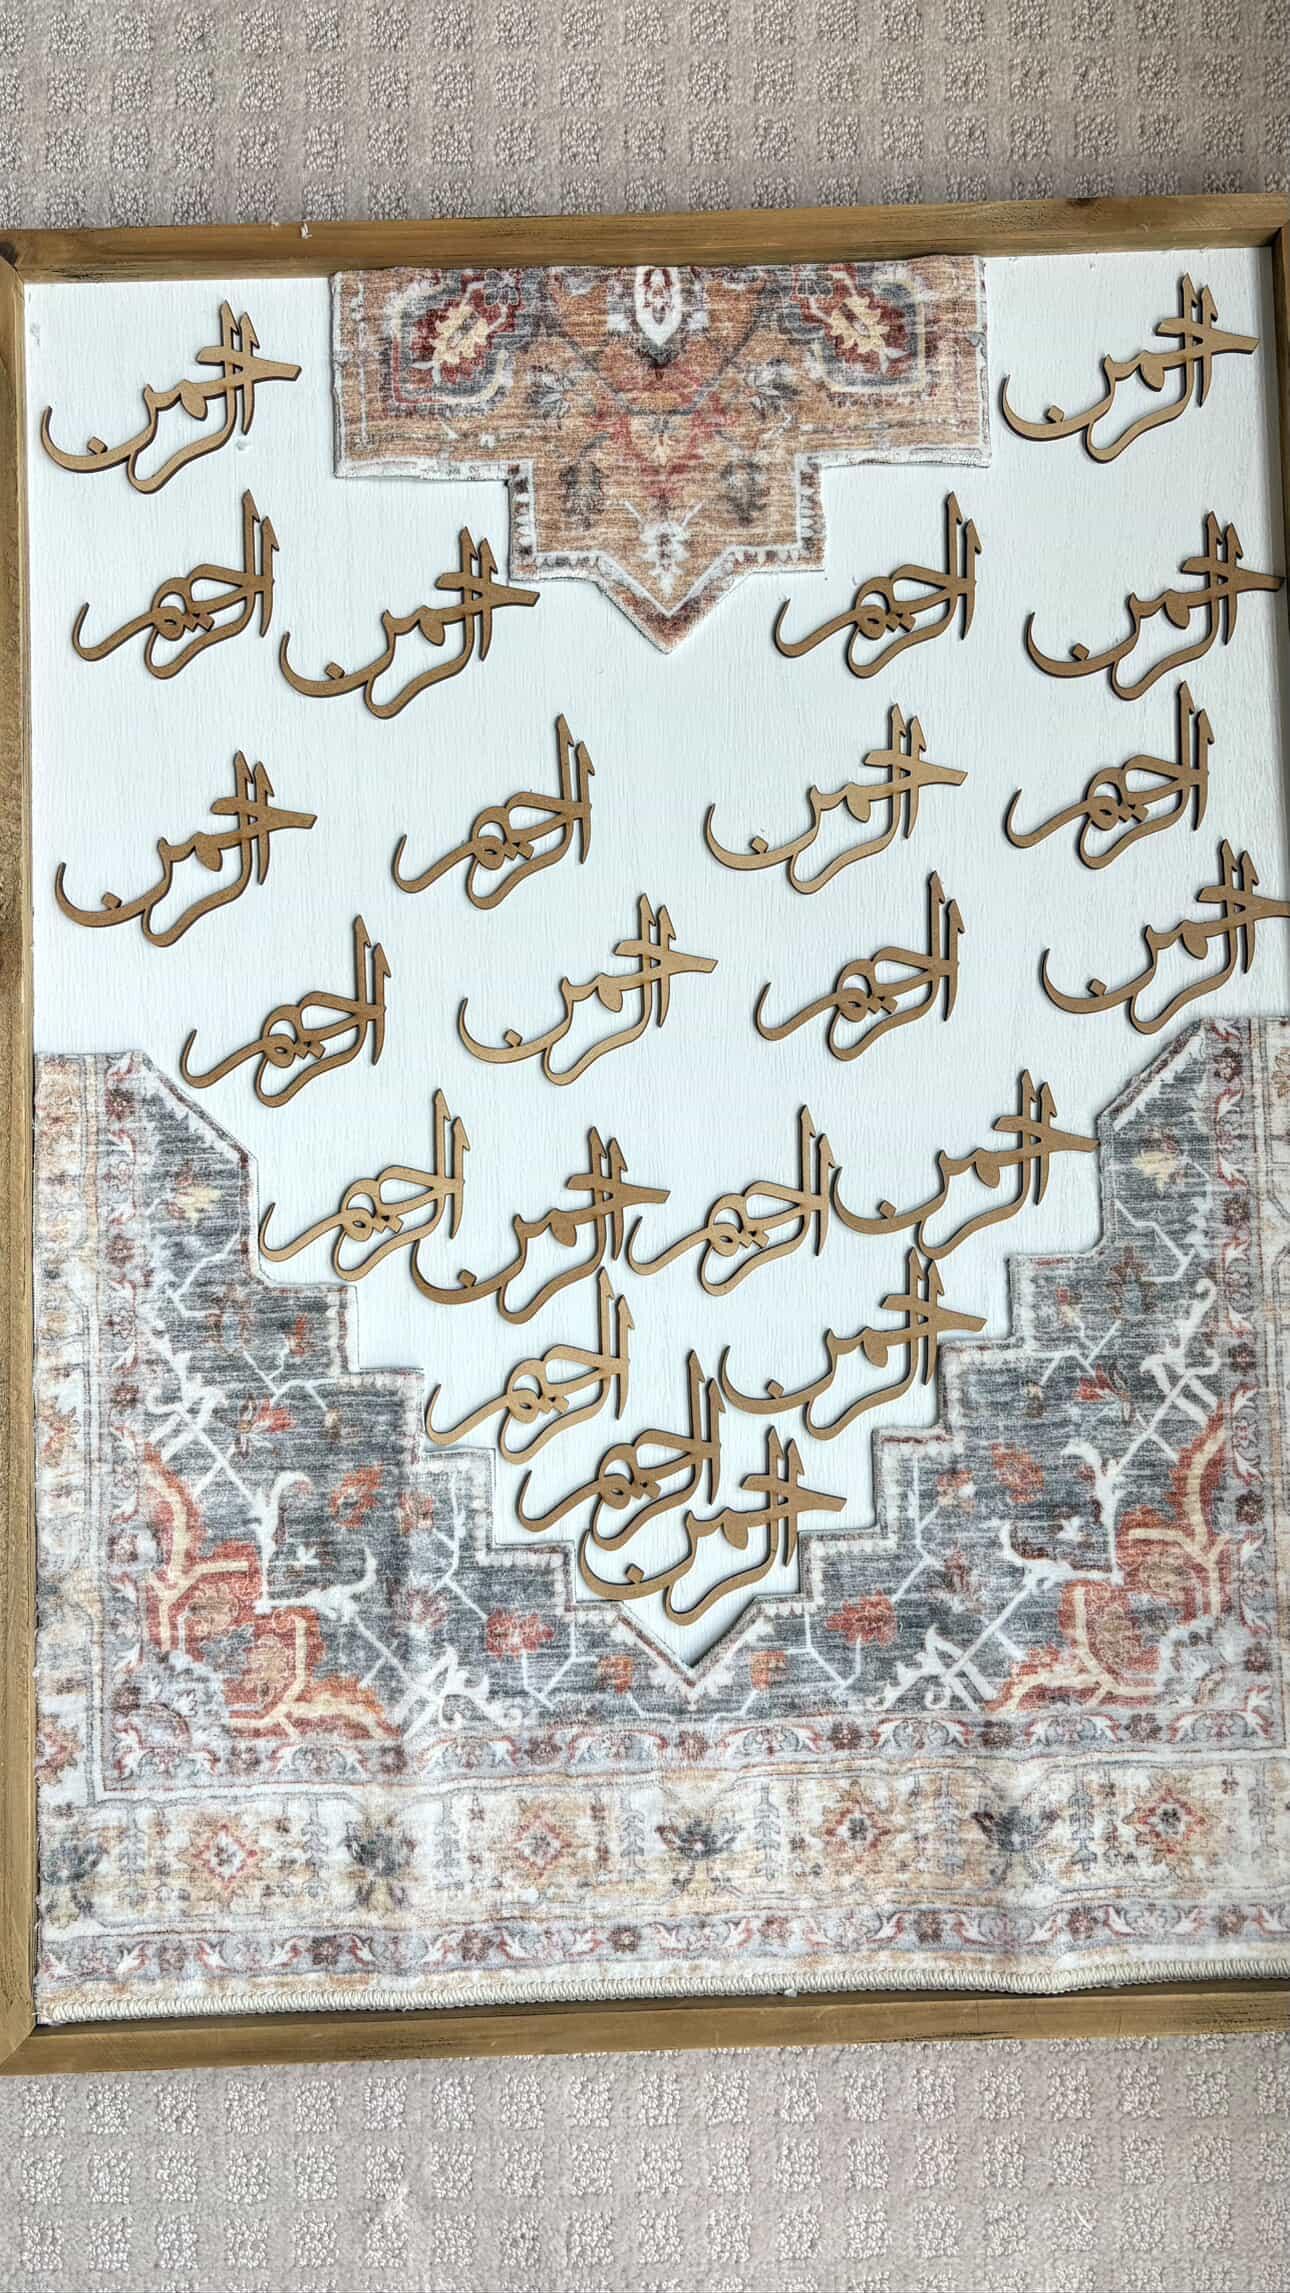 الرحمن الرحمن
الرحمن الرحيم الرحمن الرحيم
الرحيم الرحمن الرحيم الرحمن
الرحمن الرحيم الرحمن الرحيم
الرحمن الرحيم الرحمن الرحيم
الرحمن الرحيم
الرحمن الرحيم